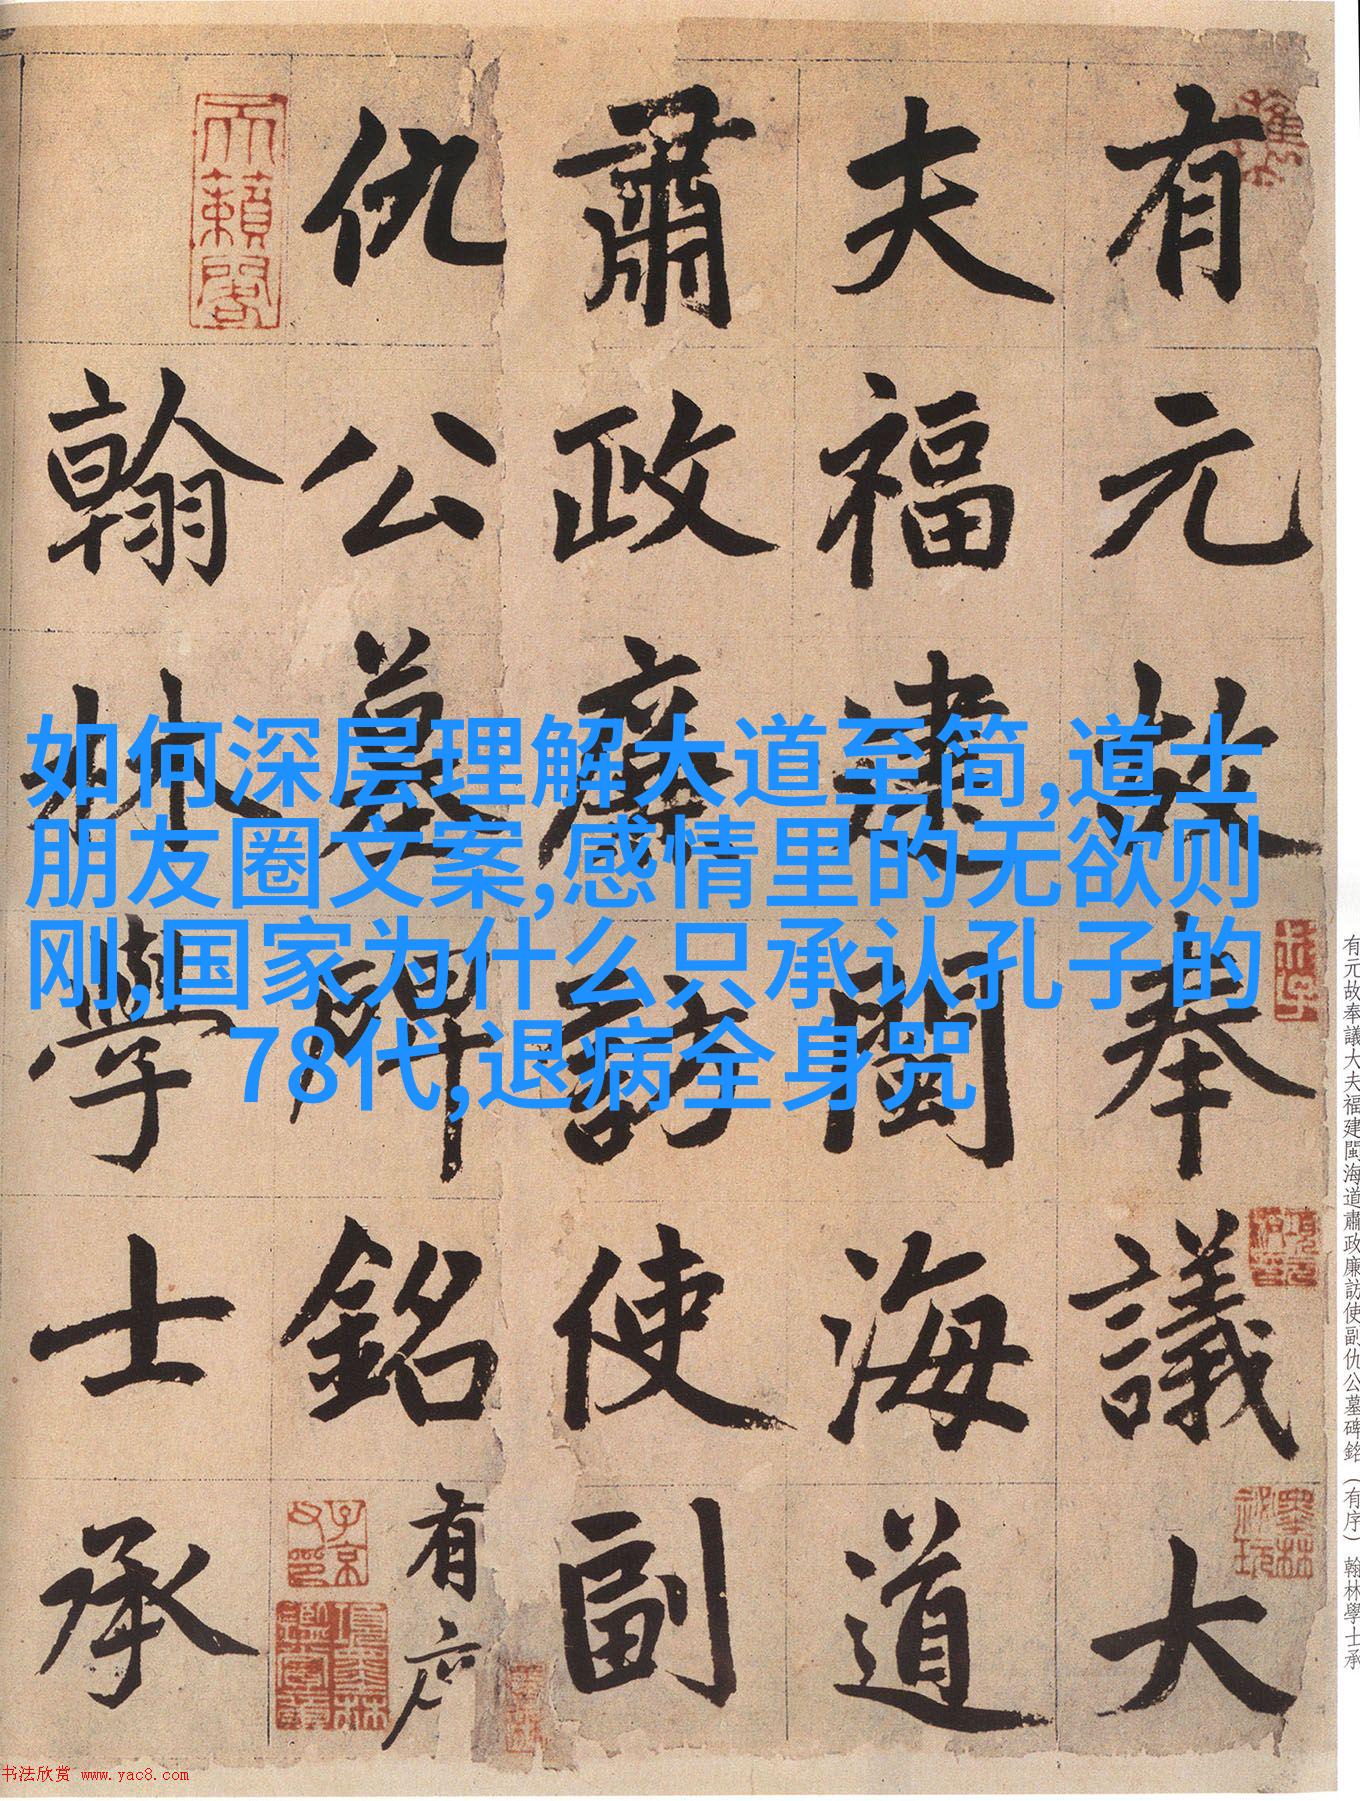 有元故奉議大
夫福建閩海道
肅政廉訪使副
仇公墓碑銘有序
翰林學士承
天籟閣
子京父印
項墨林鑑賞章
墨林祕玩
如何深层理解大道至简,道士
朋友圈文案,感情里的无欲则
刚,国家为什么只承认孔子的
78代,退病全身咒
有元故奉議大夫福建閩海道肅政廉訪使副仇公墓碑銘（有序） 翰林學士承
书法欣赏 www.yac8.com